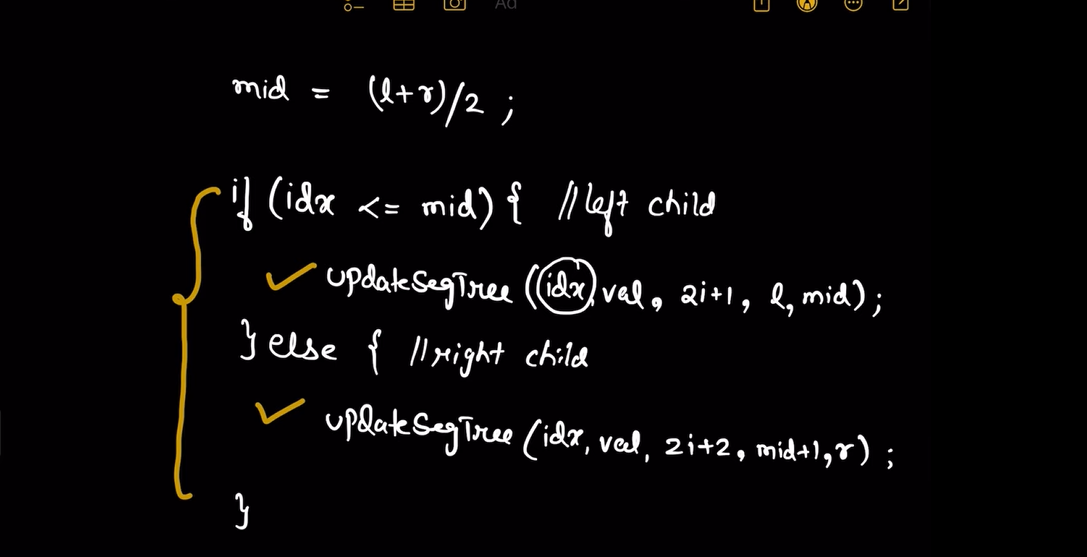 Aa
mid = (l+r)/2 ;
if (idx <= mid) { // left child
updateSegTree (idx, val, 2i+1, l, mid);
} else { // right child
updateSegTree (idx, val, 2i+2, mid+1, r) ;
}